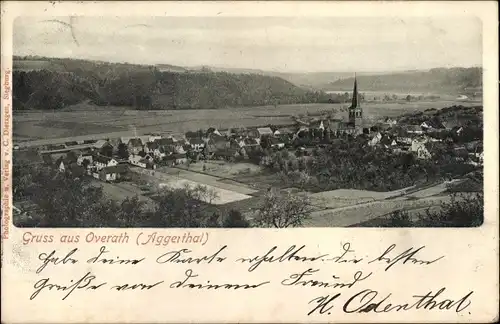 Photographie u. Verlag v. C. Dietzgen, Siegburg.
Gruss aus Overath (Aggerthal)
Habe deine Karte erhalten Freund die besten
Grüße von deinem Freund
H. Odenthal.